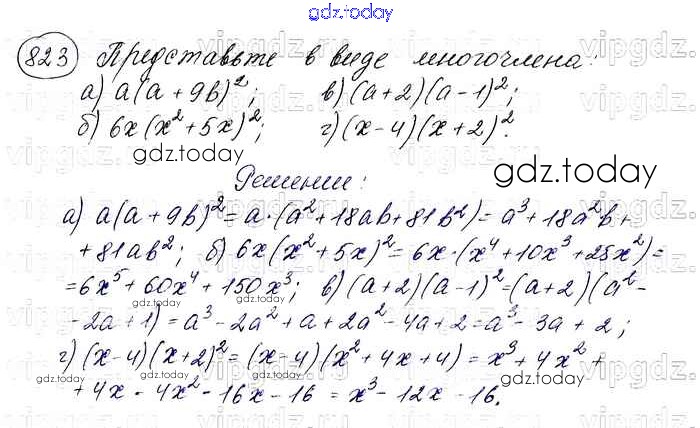 gdz.today
823 Представьте в виде многочлена:
а) a(a + 9b)²; в) (a+2)(a-1)²;
б) 6x(x²+5x)²; г) (x-4)(x+2)².
gdz.today
gdz.today
Решение:
а) a(a+9b)² = a·(a²+18ab+81b²) = a³+18a²b+
gdz.today
+81ab²; б) 6x(x²+5x)² = 6x·(x⁴+10x³+25x²) =
=6x⁵+60x⁴+150x³; в) (a+2)(a-1)²=(a+2)(a²-
gdz.today
-2a+1) = a³-2a²+a+2a²-4a+2 = a³-3a+2;
gdz.today
г) (x-4)(x+2)² = (x-4)(x²+4x+4) = x³+4x²+
gdz.today
gdz.today
+4x-4x²-16x-16 = x³-12x-16.
gdz.today
vipgdz.